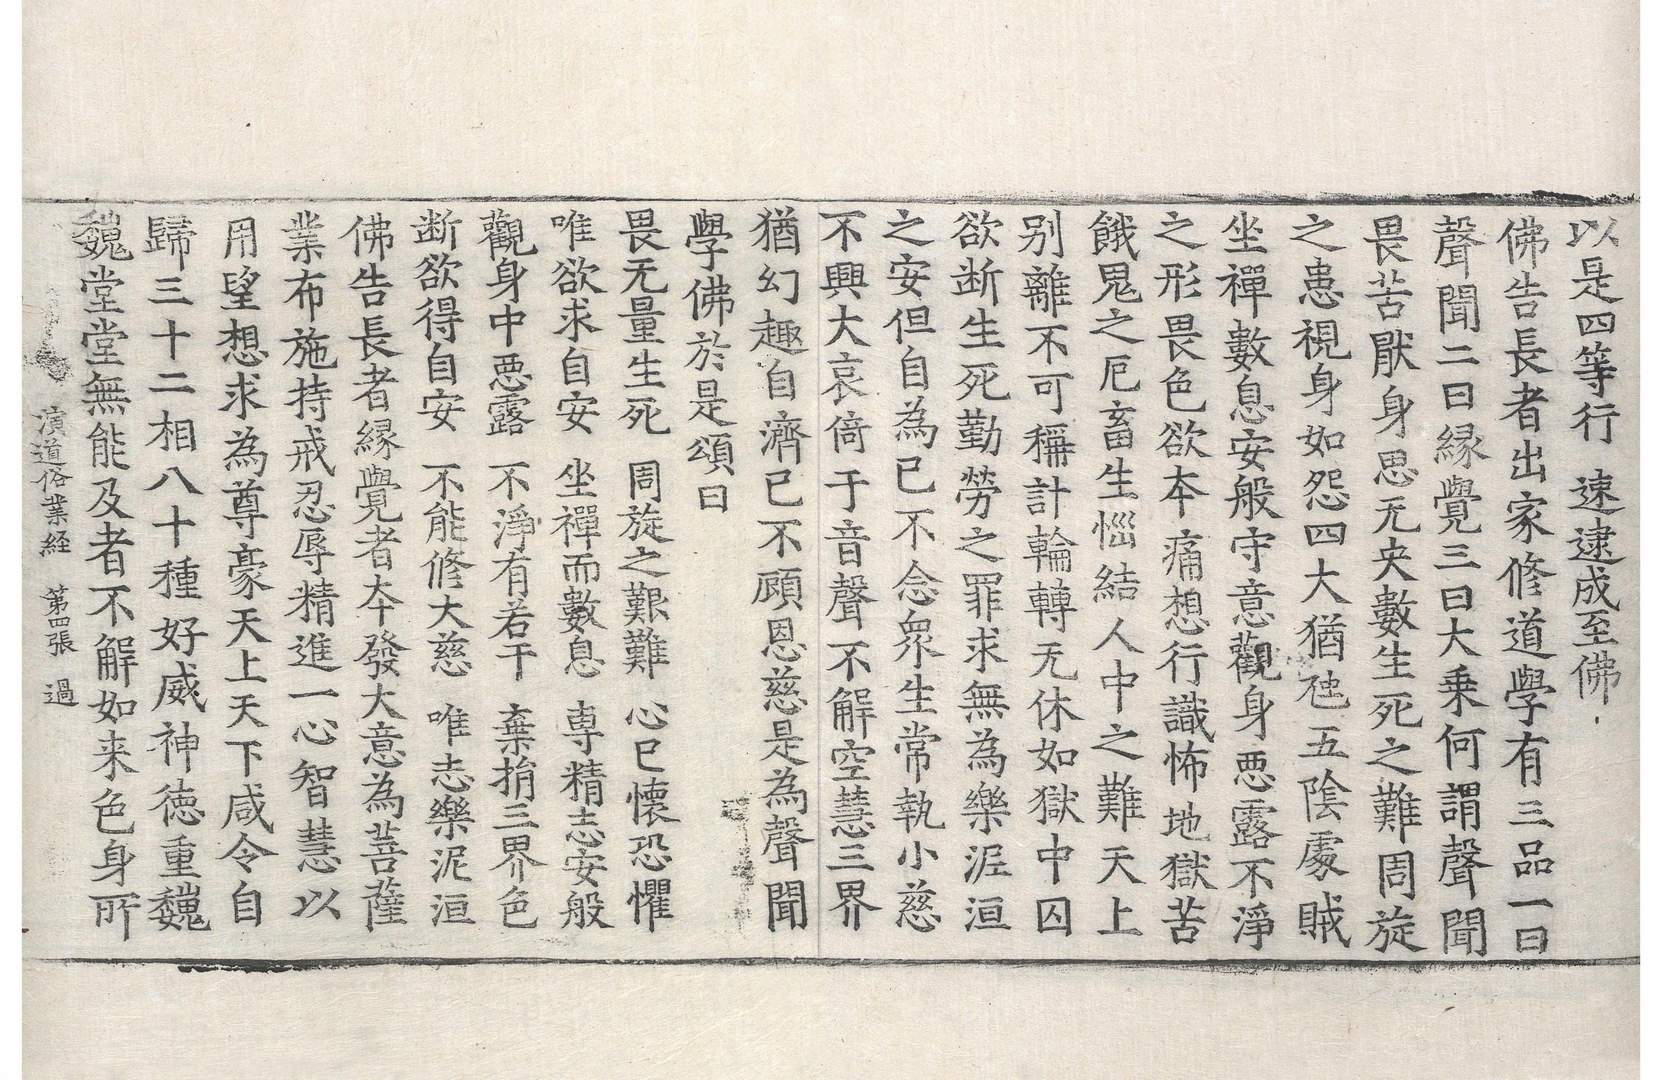 以是四等行 速逮成至佛
佛告長者出家修道學有三品一曰
聲聞二曰縁覺三曰大乗何謂聲聞
畏苦厭身思无央數生死之難周旋
之患視身如怨四大猶虵五陰處賊
坐禪數息安般守意觀身惡露不淨
之形畏色欲夲痛想行識怖地獄苦
餓鬼之厄畜生惱結人中之難天上
別離不可稱計輪轉无休如獄中囚
欲断生死勤勞之罪求無為樂泥洹
之安但自為已不念衆生常執小慈
不興大哀倚于音聲不解空慧三界
猶幻趣自濟已不顧恩慈是為聲聞
學佛於是頌曰
畏无量生死 周旋之艱難 心已懷恐懼
唯欲求自安 坐禪而數息 専精志安般
觀身中惡露 不淨有若干 棄捐三界色
断欲得自安 不能修大慈 唯志樂泥洹
佛告長者縁覺者夲發大意為菩薩
業布施持戒忍辱精進一心智慧以
用望想求為尊豪天上天下咸令自
歸三十二相八十種好威神徳重巍
巍堂堂無能及者不解如来色身所
演道俗業経 第四張 過